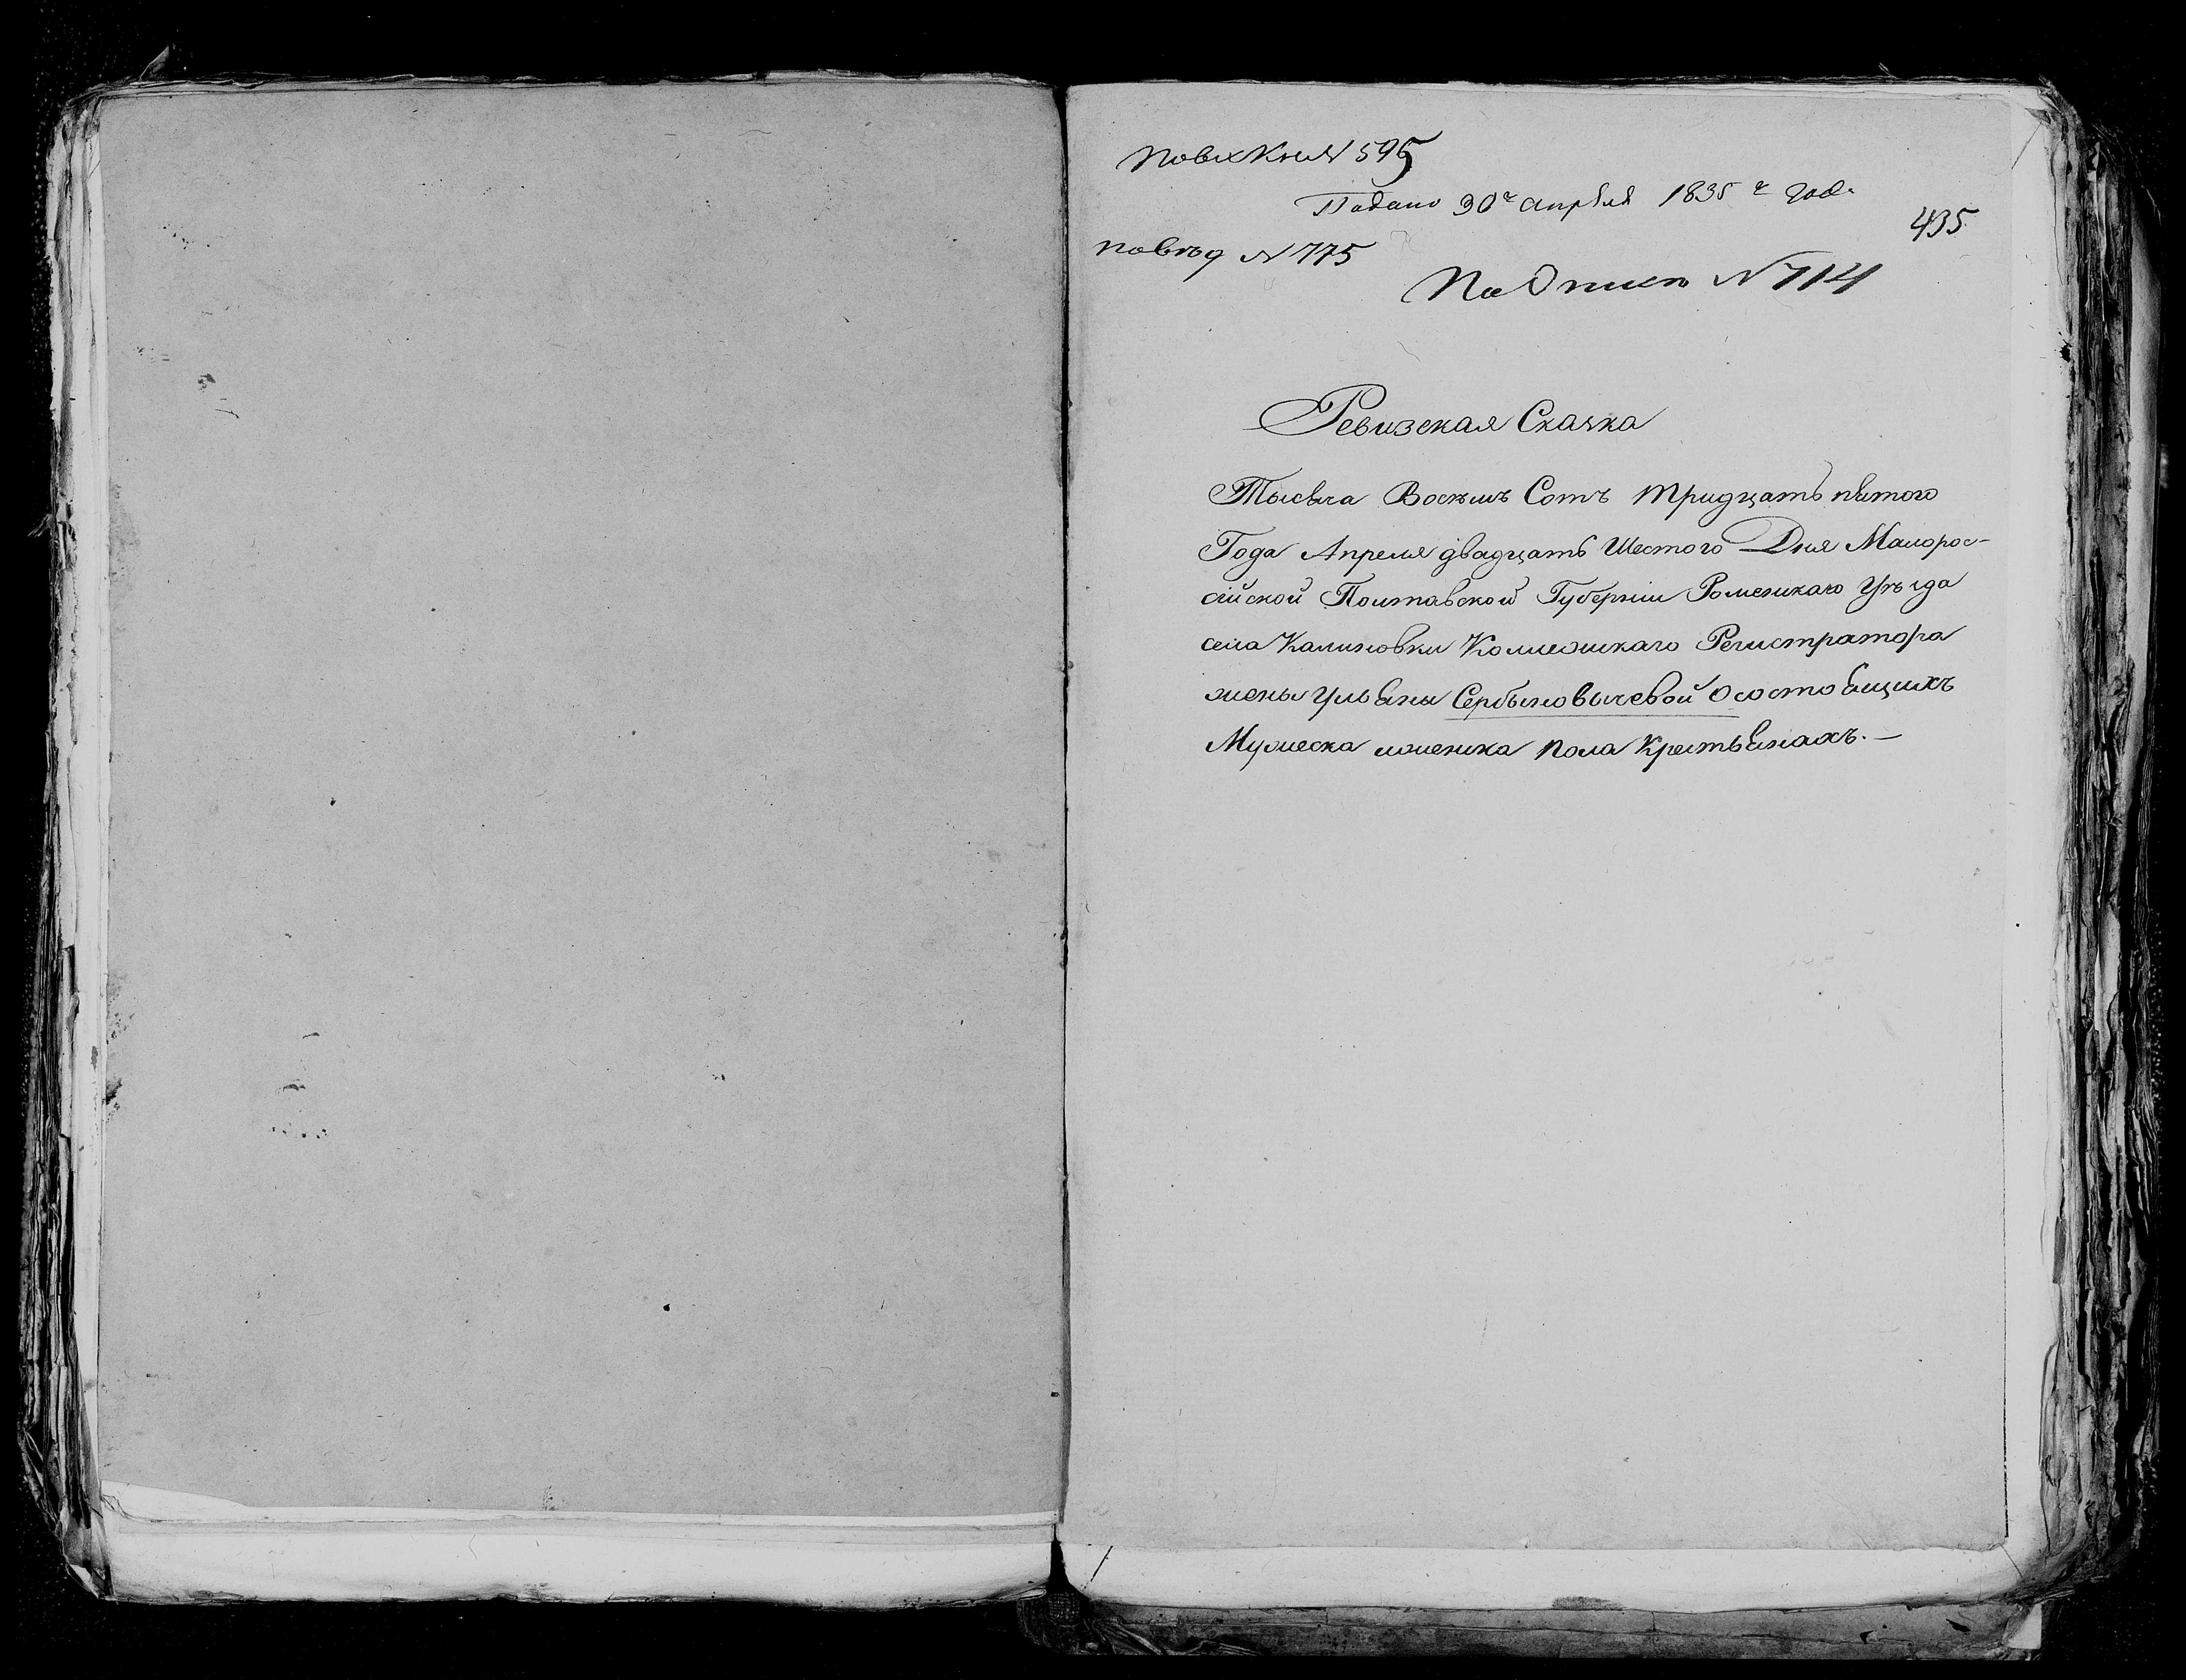 По вх Кни № 595
Подано 30го апреля 1835го года
435
По въд № 775
Подписи № 714
Ревизская Сказка
Тысяча Восемь Сотъ тридцать пятого
Года Апреля двадцать Шестого Дня Малорос-
сійской Полтавской Губерніи Роменскаго Уѣзда
села Калиновки Коллежскаго Регистратора
жены Ульяны Сербиновычевой О состоящихъ
Мужеска иженска пола Крестьянахъ. —